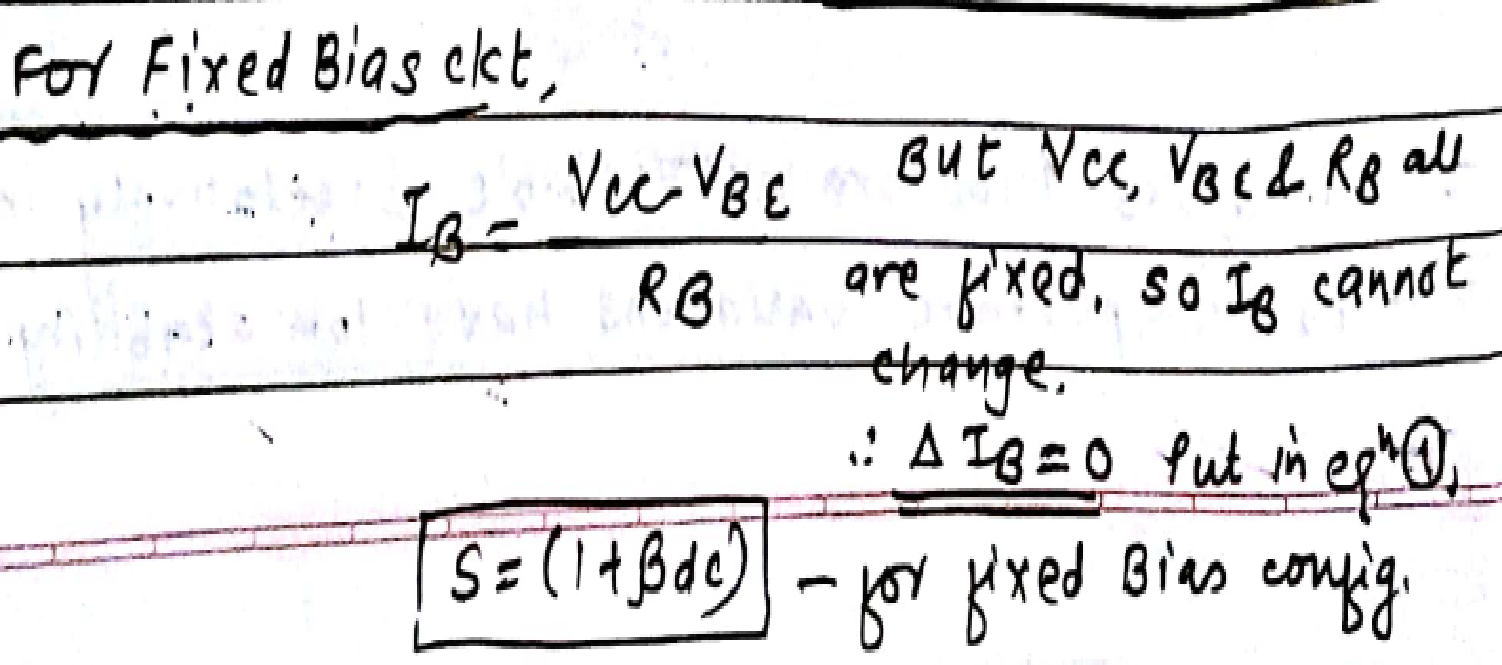 For Fixed Bias ckt,
IB = VCC-VBE / RB But VCC, VBE & RB all
are fixed, so IB cannot
change.
∴ ΔIB=0 Put in eqn ①,
S=(1+βdc) - for fixed Bias config.